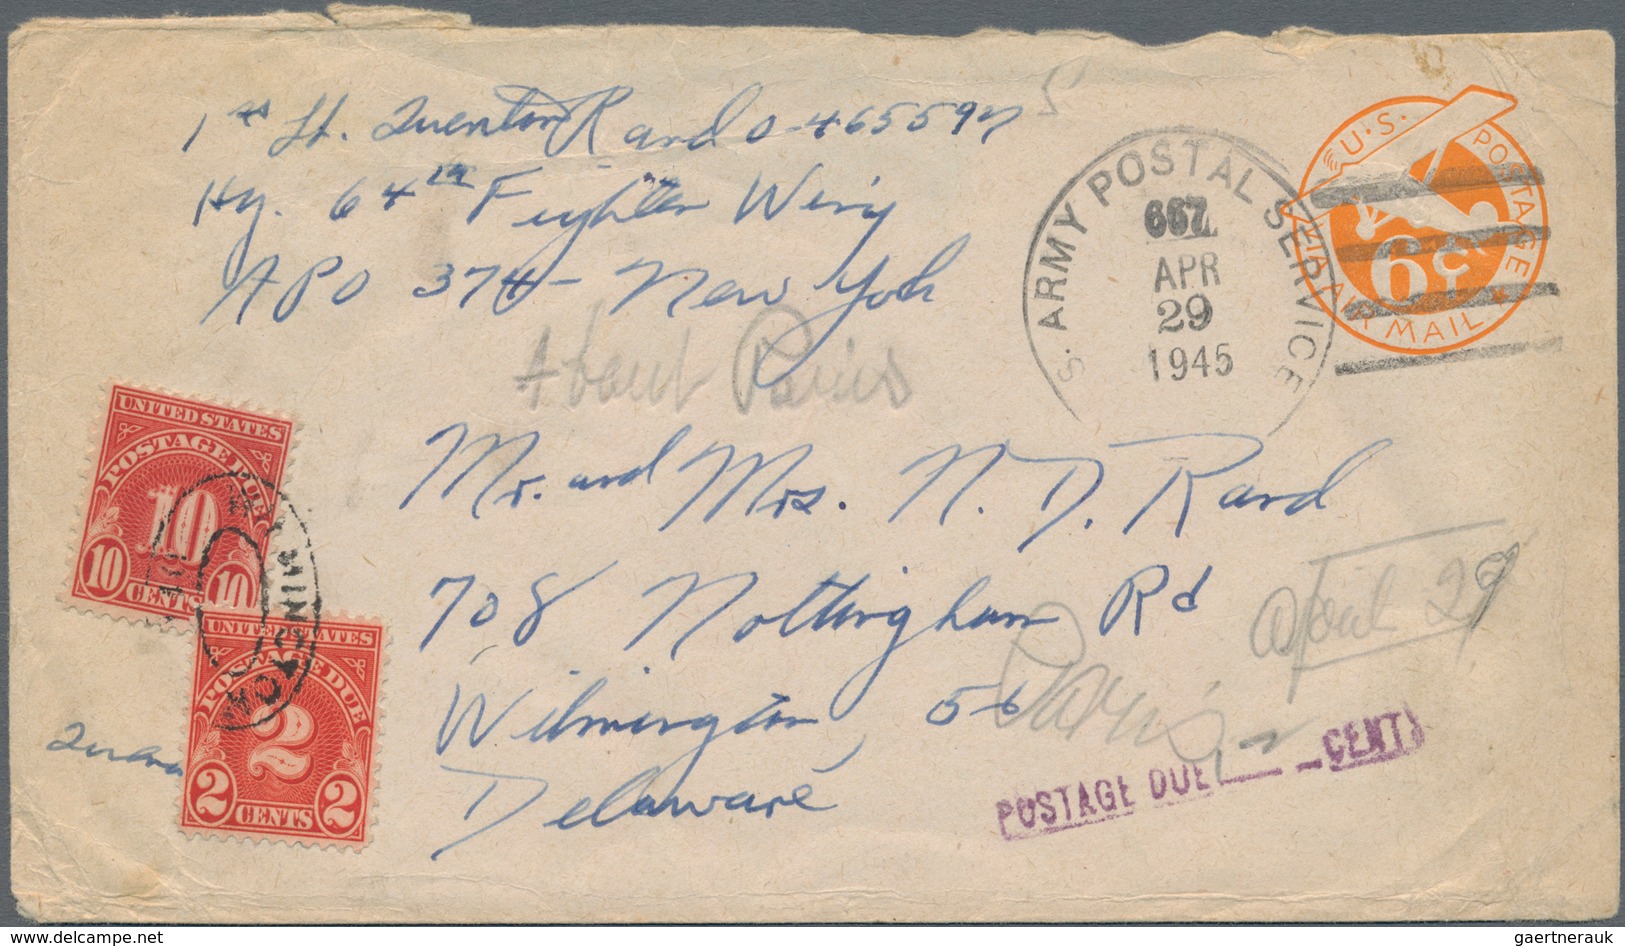 1st Lt. Quenton Rand O-465597
Hq. 64th Fighter Wing
APO 374 - New York
About Paris
Mr. and Mrs. N. D. Rand
708 Nottingham Rd
Wilmington 56
Delaware
Paris
April 29
S. ARMY POSTAL SERVICE
667
APR
29
1945
U.S. POSTAGE
6¢
VIA AIR MAIL
UNITED STATES
POSTAGE DUE
10
10 CENTS 10
UNITED STATES
POSTAGE DUE
2
2 CENTS 2
WILMINGTON
POSTAGE DUE CENTS
delcampe.net
gaertnerauk